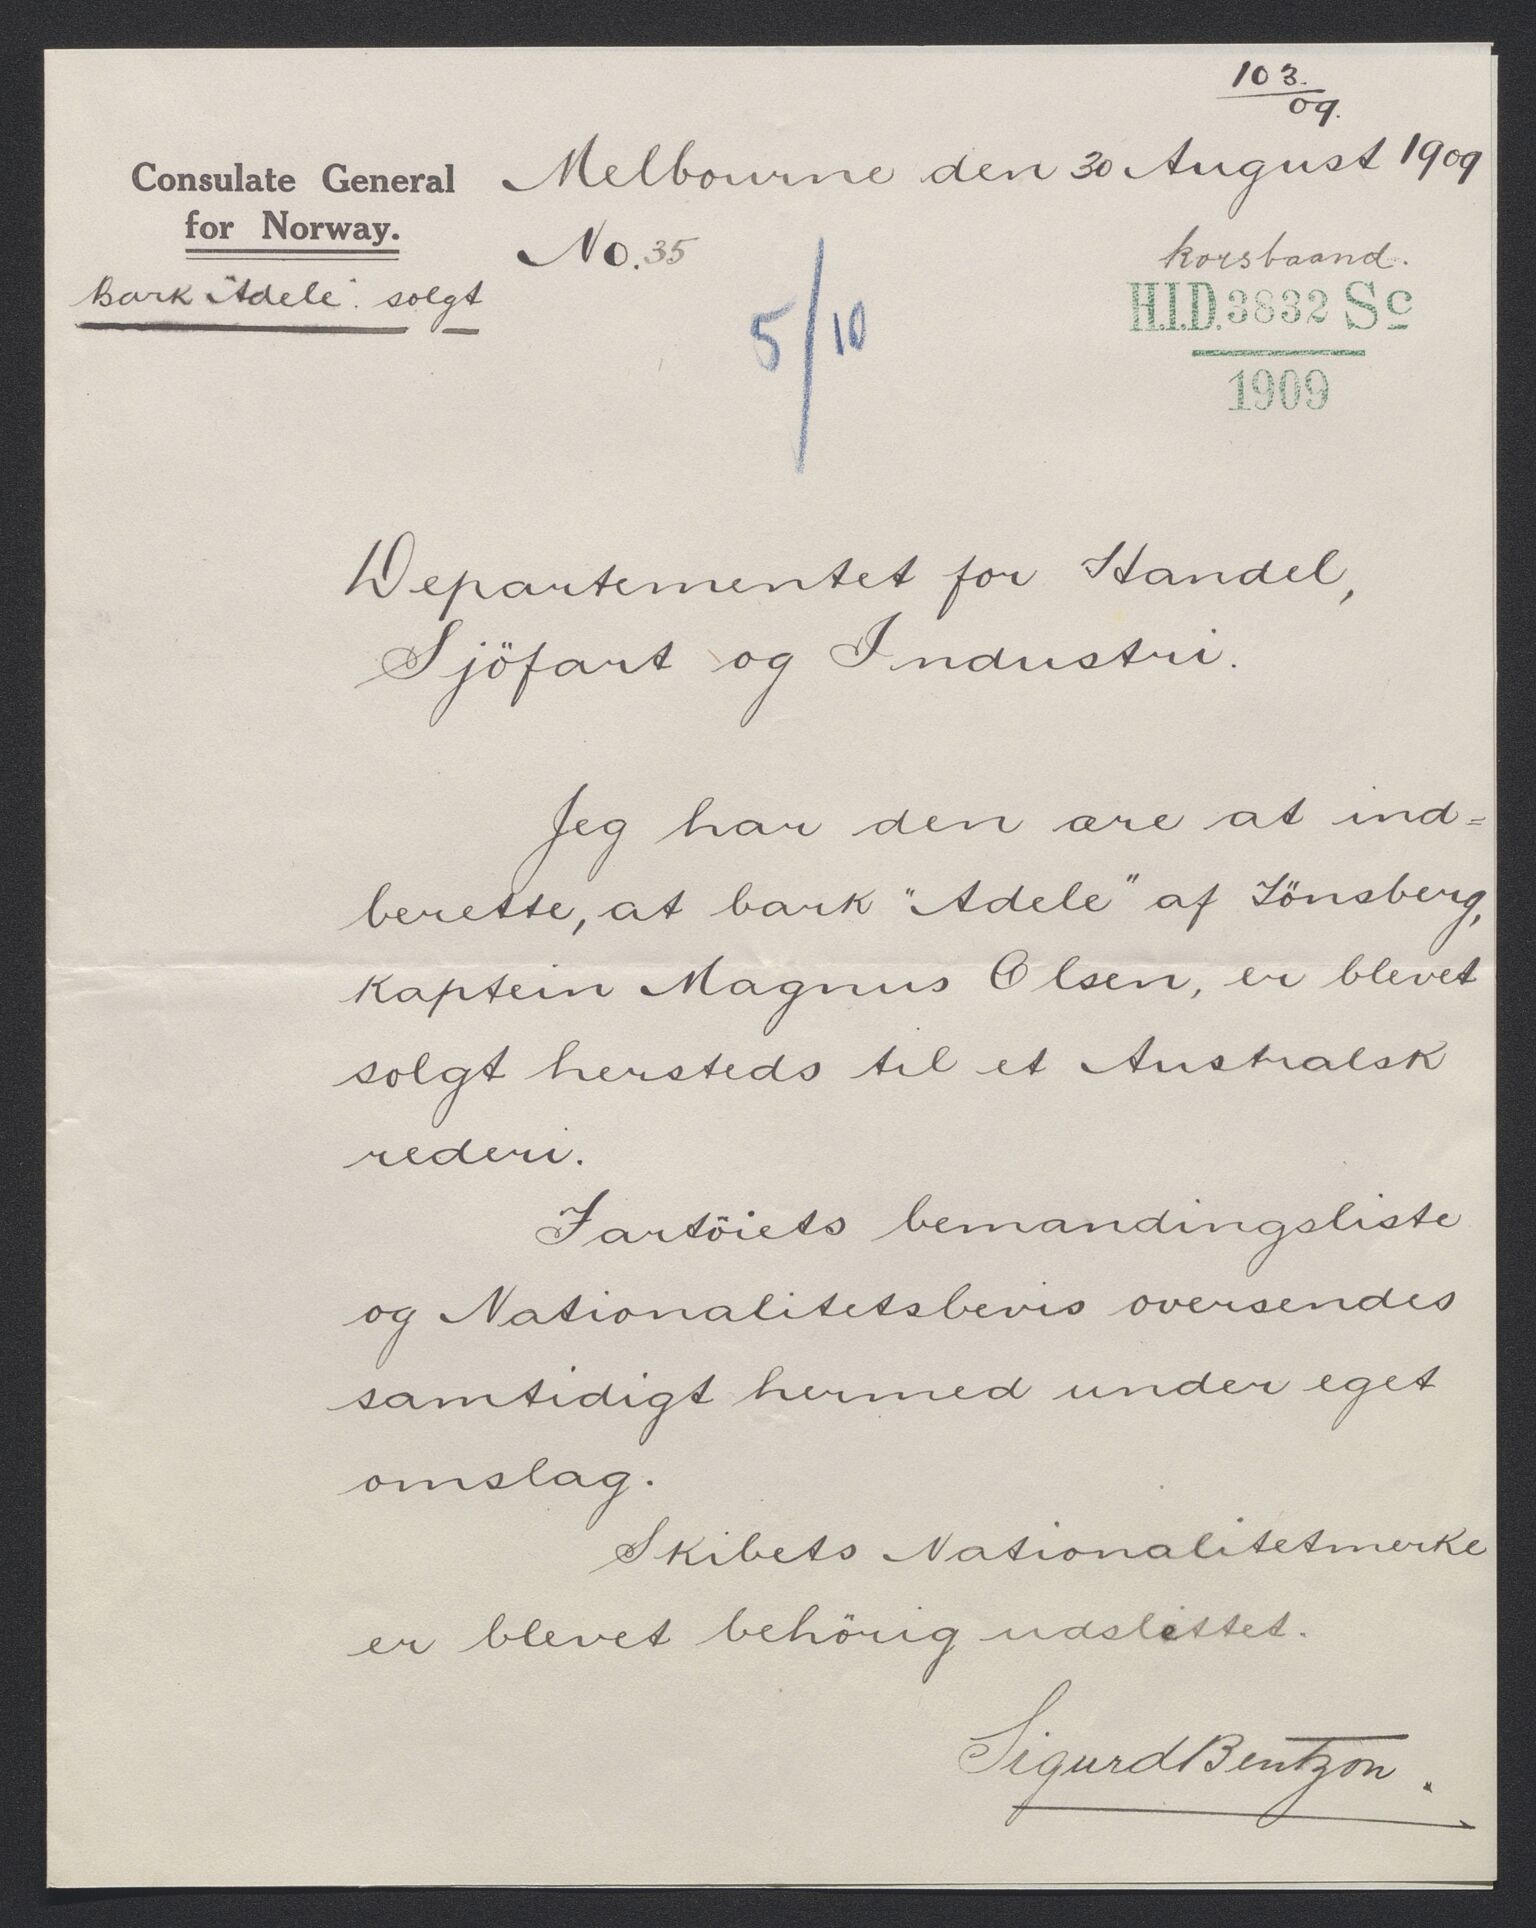 103.
09.
Consulate General
for Norway.
Melbourne den 30 August 1909
No. 35
Bark "Adele". solgt
korsbaand.
H.I.D. 3832 Sc
1909
5/10
Departementet for Handel,
Sjöfart og Industri.
Jeg har den ære at ind=
berette, at bark "Adele" af Tönsberg,
kaptein Magnus Olsen, er blevet
solgt hersteds til et Australsk
rederi.
Fartöiets bemandingsliste
og Nationalitetsbevis oversendes
samtidigt hermed under eget
omslag.
Skibets Nationalitetmerke
er blevet behörig udslettet.
Sigurd Bentzon.